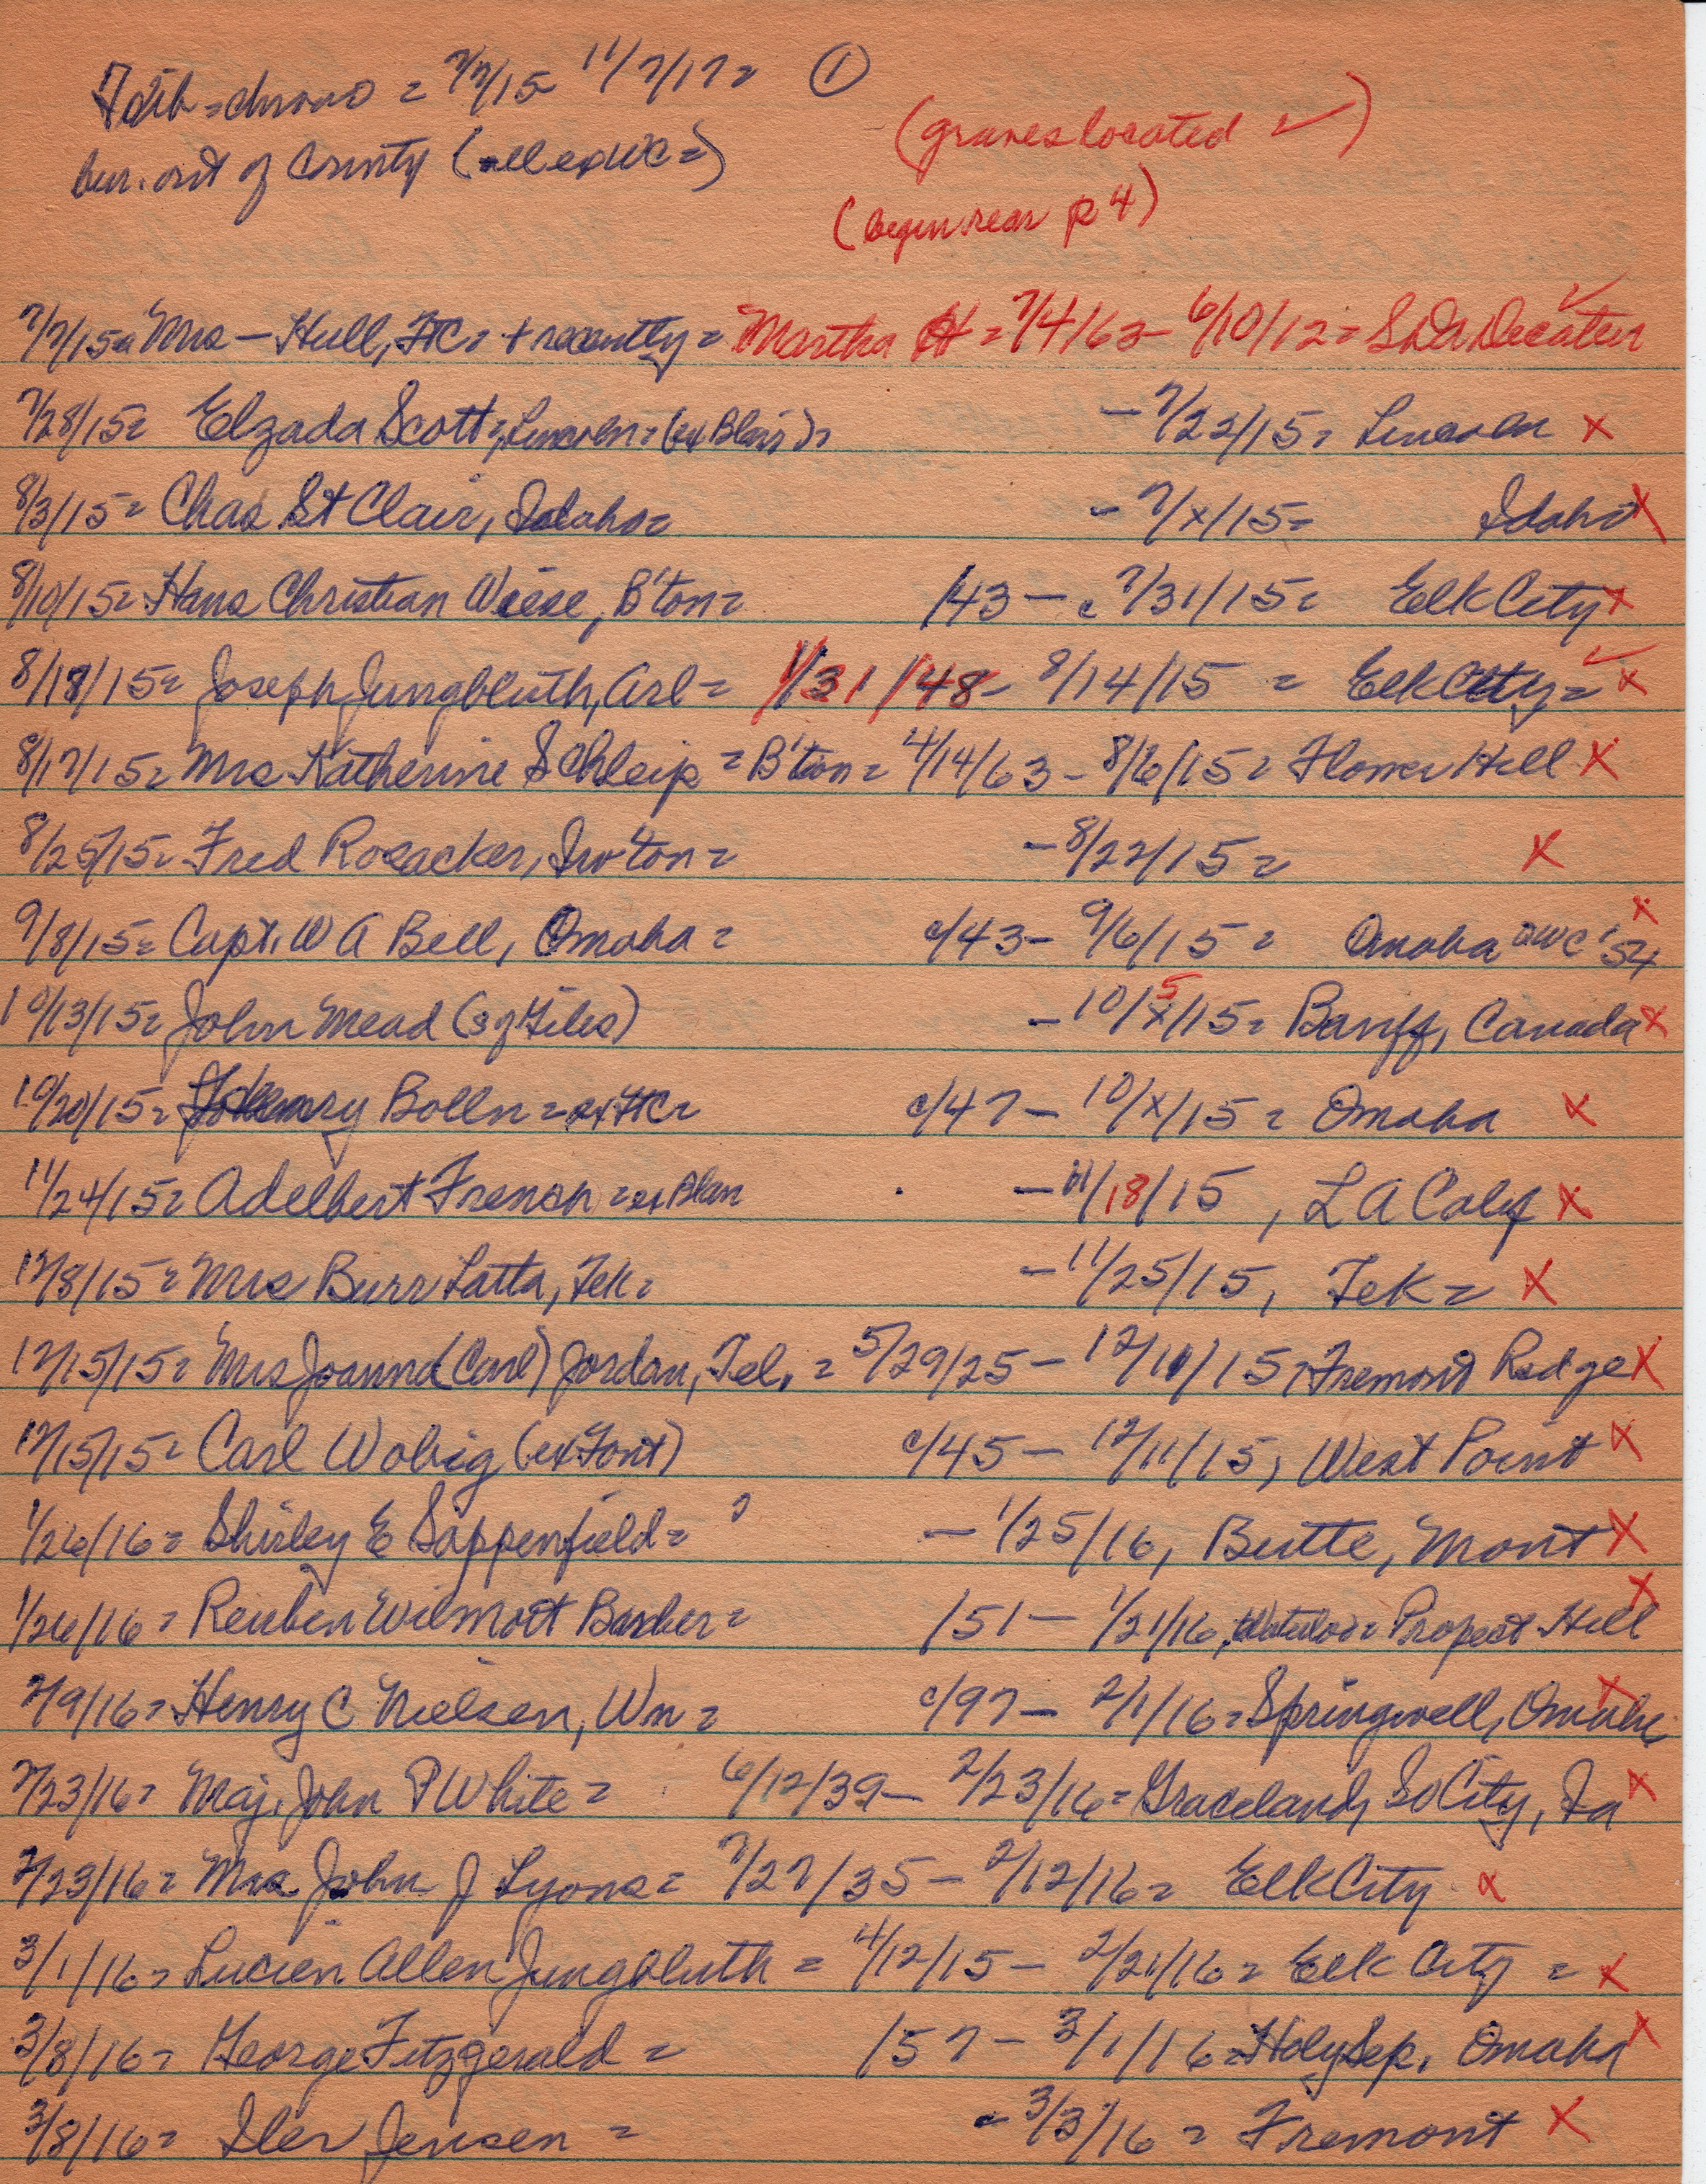 = chrono = 7/7/15 - 11/7/17 = ①
bur. out of County (all exWC =)
(graves located ✓)
(begin rear p 4)
7/7/15 = Mrs — Hull, HC = + recently = Martha H = 7/4/63 - 6/10/12 = SDA Decatur ✓
7/28/15 = Elzada Scott, Lincoln = (ex Blair) = - 7/22/15 = Lincoln X
8/3/15 = Chas St Clair, Idaho = - 7/x/15 = Idaho X
8/10/15 = Hans Christian Wiese, B'ton = /43 - c 7/31/15 = Elk City X
8/18/15 = Joseph Jungbluth, Arl = 1/31/48 - 8/14/15 = Elk City = ✓ X
8/17/15 = Mrs Katherine Schleip = B'ton = 4/14/63 - 8/6/15 = Flower Hill X
8/25/15 = Fred Rosacker, Irv'ton = - 8/22/15 = X
9/8/15 = Capt. W A Bell, Omaha = c/43 - 9/6/15 = Omaha WC '54 X
10/13/15 = John Mead (s of Giles) - 10/5/15 = Banff, Canada X
10/20/15 = Henry Bolln = ex HC = c/47 - 10/x/15 = Omaha X
11/24/15 = Adelbert French = ex Blair - 11/18/15, L A Calif X
12/8/15 = Mrs Burr Latta, Tek = - 11/25/15, Tek = X
12/15/15 = Mrs Joanna (Carl) Jordan, Tel. = 5/29/25 - 12/10/15, Fremont Ridge X
12/15/15 = Carl Wobig (ex Font) c/45 - 12/11/15, West Point X
1/26/16 = Shirley E Sappenfield = ? - 1/25/16, Butte, Mont X
1/26/16 = Reuben Wilmott Barber = /51 - 1/21/16, Waterloo = Propect Hill X
2/9/16 = Henry C Nielsen, Wn = c/97 - 2/1/16 = Springwell, Omaha X
2/23/16 = Maj. John P White = 6/12/39 - 2/23/16 = Graceland, So City, Ia X
2/23/16 = Mrs. John J Lyons = 7/27/35 - 2/12/16 = Elk City X
3/1/16 = Lucien Allen Jungbluth = 4/12/15 - 2/21/16 = Elk City = X
3/8/16 = George Fitzgerald = /57 - 3/1/16 = Holy Sep. Omaha X
3/8/16 = Iler Jensen = - 3/3/16 = Fremont X